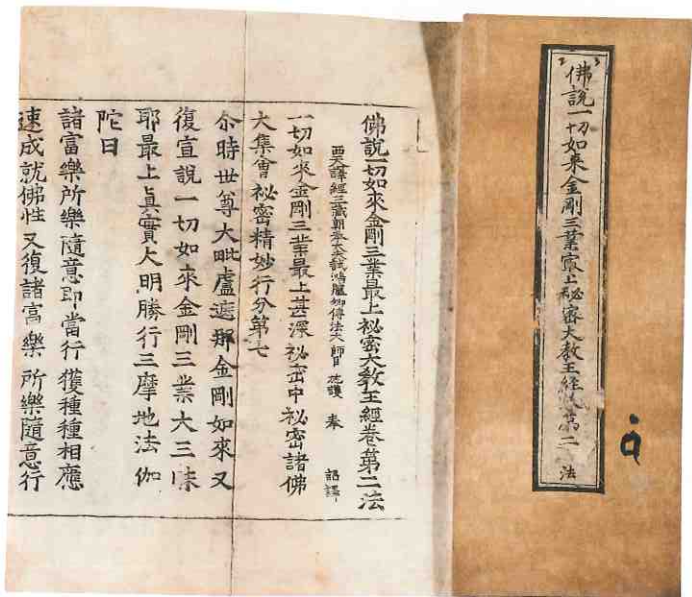 佛說一切如來金剛三業最上祕密大教王經卷第二 法
佛說一切如來金剛三業最上祕密大教王經卷第二法
西天譯經三藏朝奉大夫試鴻臚卿傳法大師臣施護 奉 詔譯
一切如來金剛三業最上甚深祕密中祕密諸佛
大集會祕密精妙行分第七
尒時世尊大毗盧遮那金剛如來又
復宣說一切如來金剛三業大三昧
耶最上真實大明勝行三摩地法伽
陀曰
諸富樂所樂隨意即當行獲種種相應
速成就佛性又復諸富樂所樂隨意行